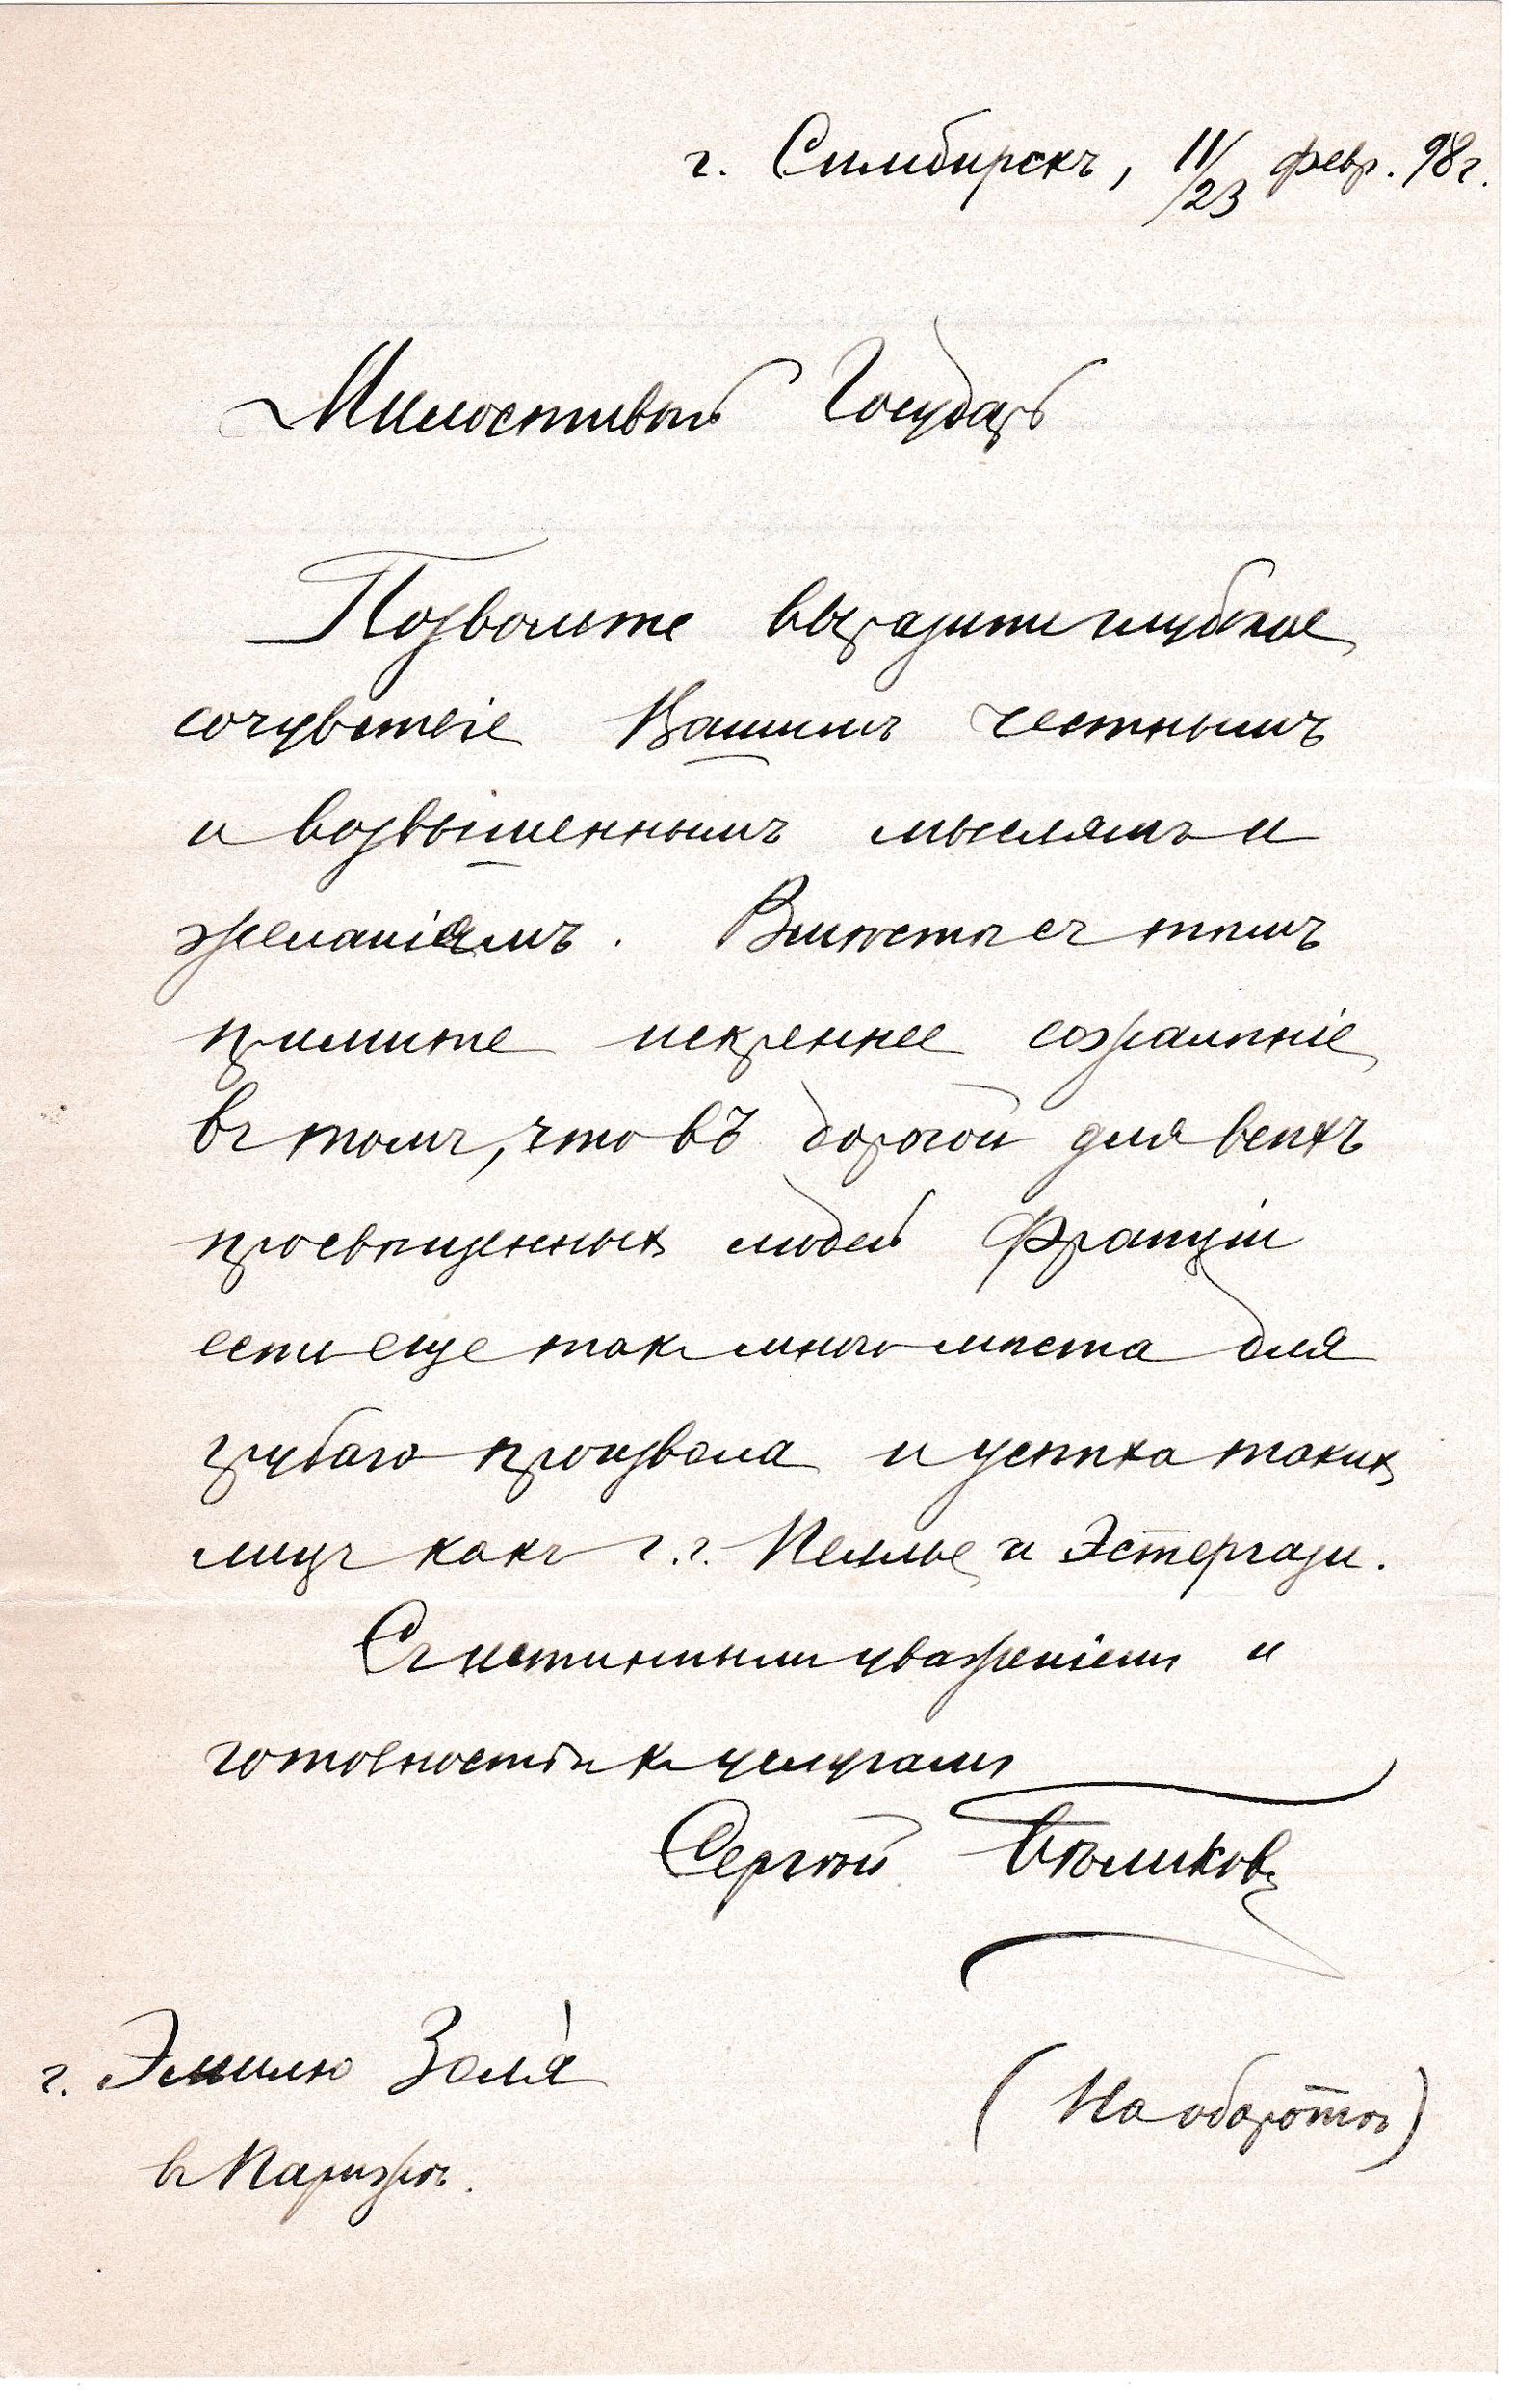 г. Симбирскъ, 11/23 февр. 98 г.
Милостивый Государь
Позвольте выразить глубокое
сочувствіе Вашимъ честнымъ
и возвышеннымъ мыслямъ и
желаніямъ. Вмѣстѣ съ тѣмъ
примите искреннее сожалѣніе
въ томъ, что въ дорогой для всѣхъ
просвѣщенныхъ людей Франціи
есть еще такъ много мѣста для
грубаго произвола и успѣха такихъ
лицъ какъ г.г. Пеллье и Эстергази.
Съ истиннымъ уваженіемъ и
готовностью къ услугамъ
Сергѣй
г. Эмилю Золя́
въ Парижѣ.
(На оборотѣ)